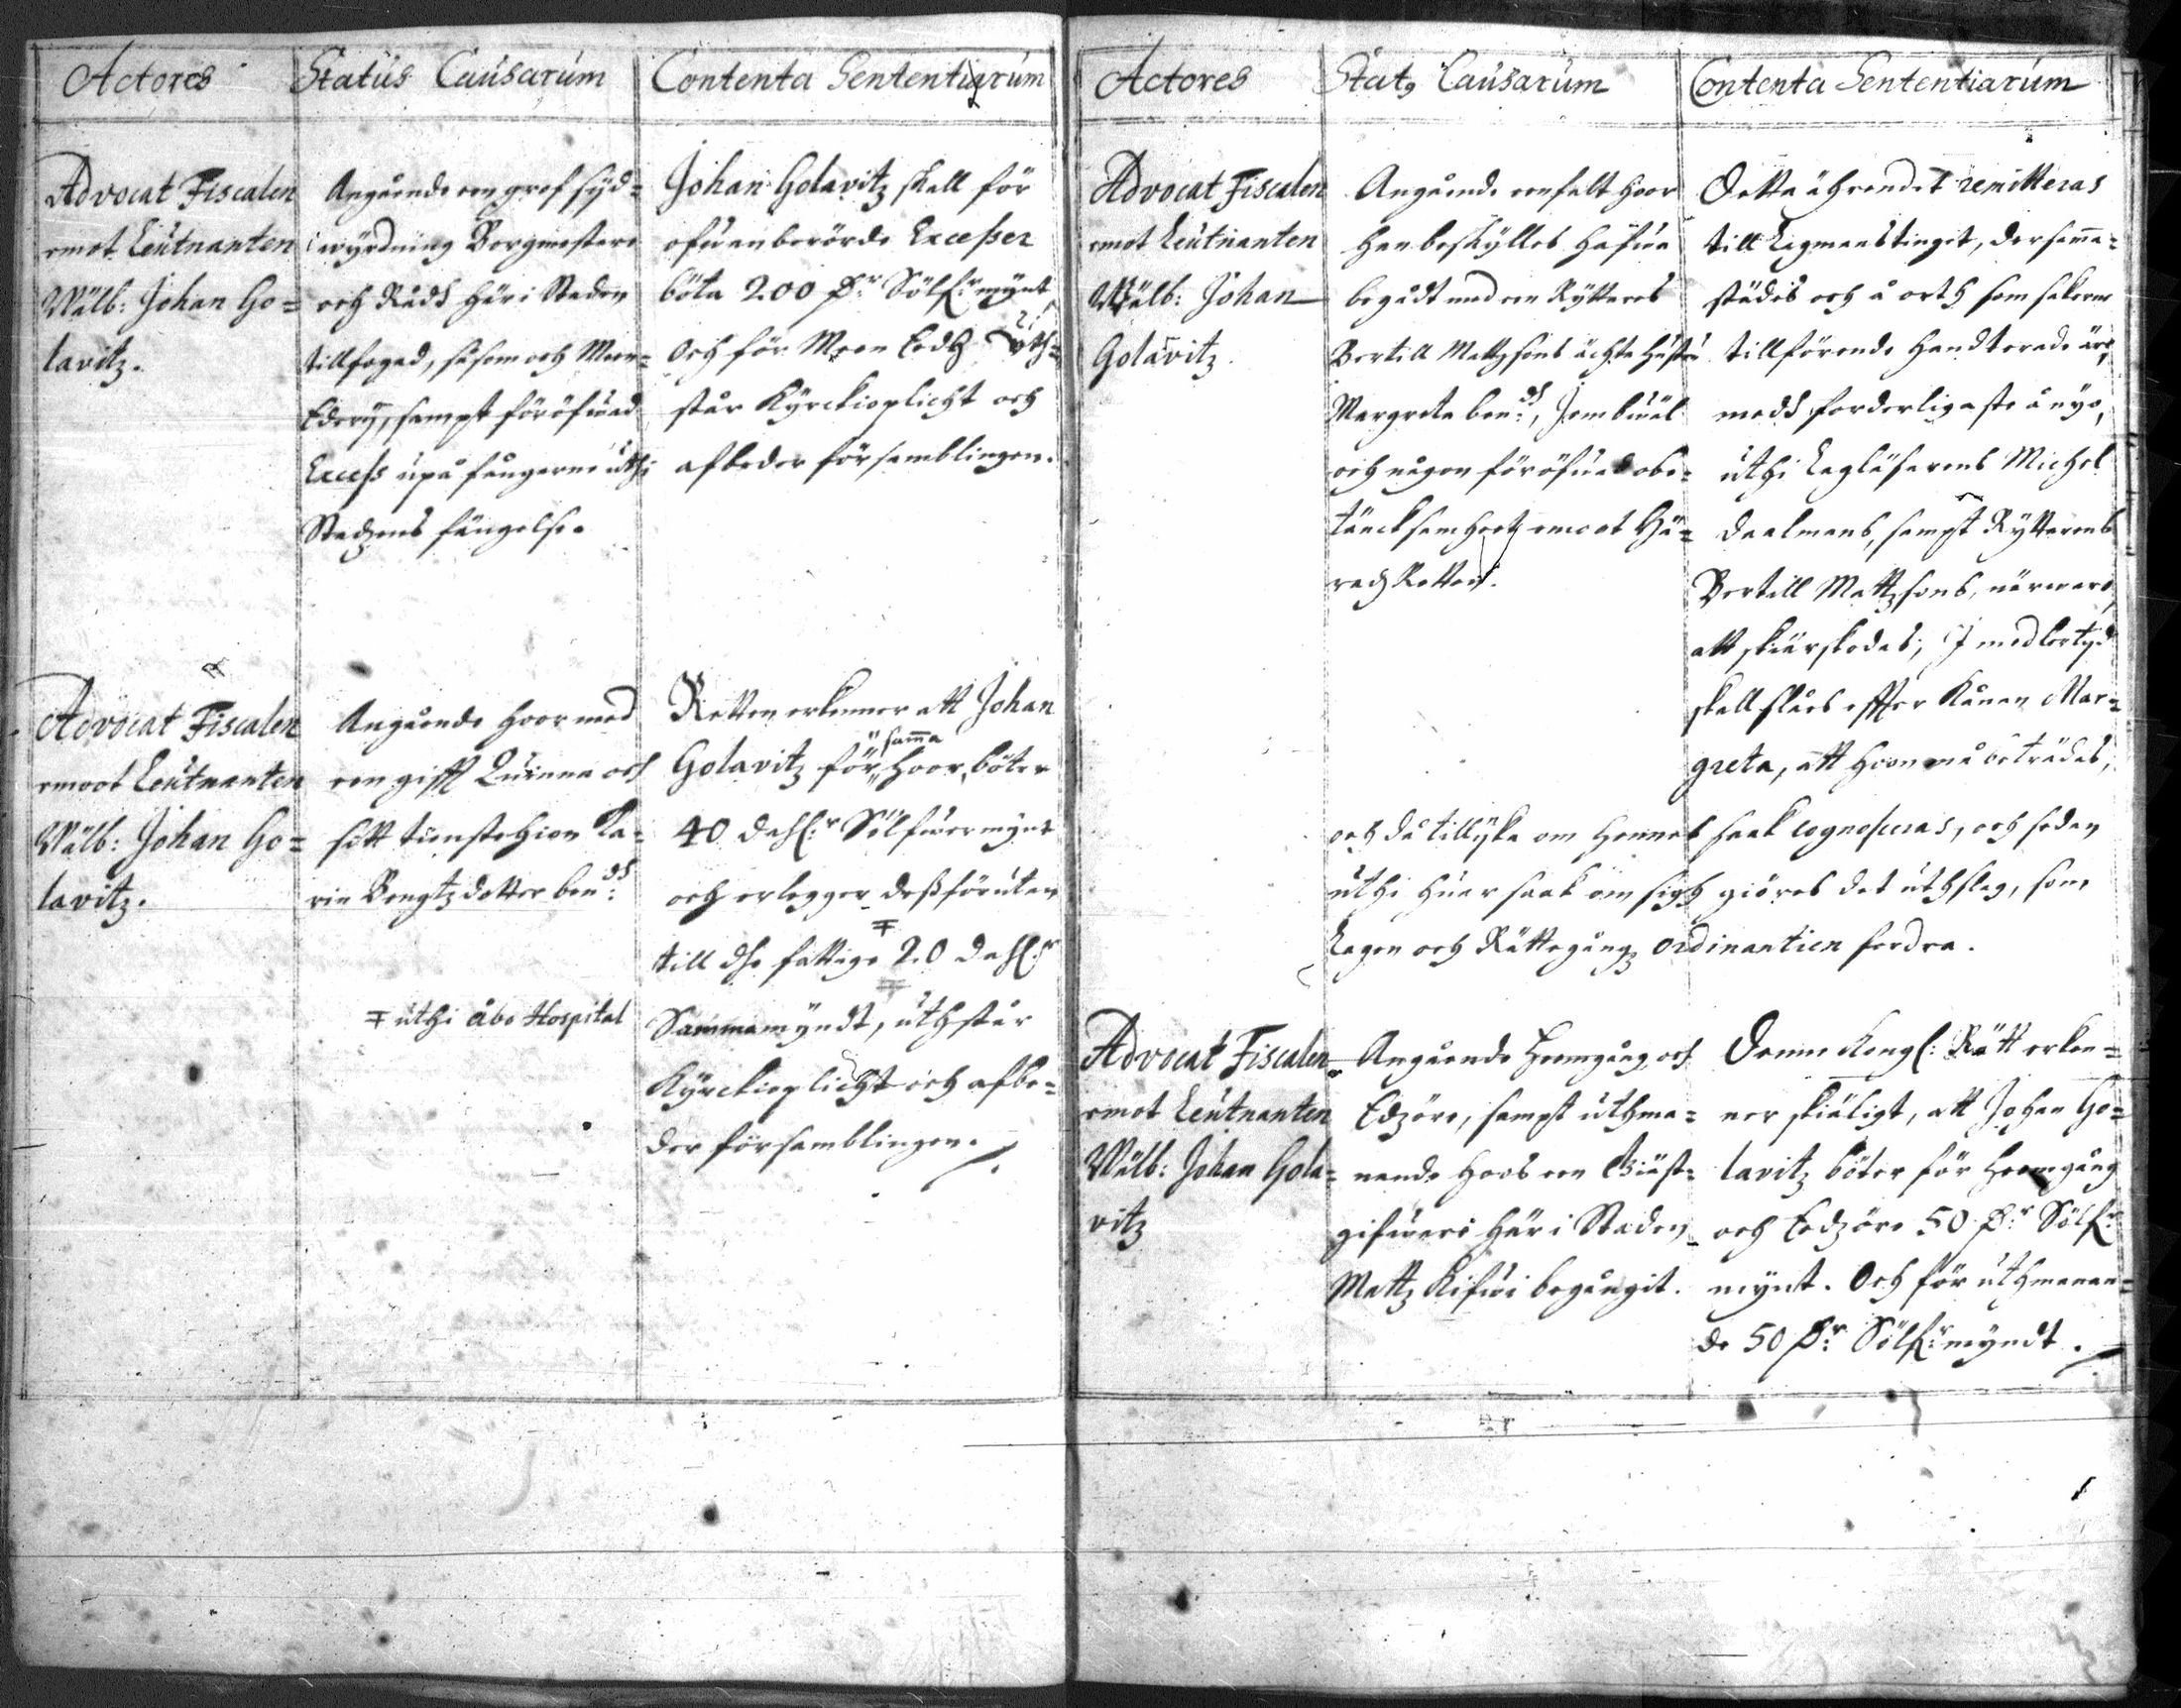 Actores
Status Causarum
Contenta Sententiarum
Advocat Fiscalen
emot Leutnanten
Wälb: Johan Go=
lavitz.
Angående een grof
wyrdning Borgmestare
och Rådh här i Staden
tillfogad, såsom och Meen=
Ederij, sampt föröfwad
Excess upå fångerne uthi
Stadzens fängelse.
Johan Golavitz skall för
ofwanberörde Excesser
böta 200 D:r Sölf:r mynt
Och för Meen Eedh uth=
står Kyrckioplicht och
afbeder församblingen.
Advocat Fiscalen
emoot Leutnanten
Wälb: Johan Go=
lavitz.
Angående hoor med
een gifft Quinna och
sitt tienstehion Ka=
rin Bengtzdotter ben:dh
∓ uthi Åbo Hospital
Retten erkenner att Johan
Golavitz för samma hoor, böter
40 dahl:r Sölfwermynt
och erlegger dessföruten
till dhe fattige ∓ 20 dahl:r
Sammamyndt, uthstår
Kyrckioplicht och afbe=
der församblingen.
Actores
Stat9 Causarum
Contenta Sententiarum
Advocat Fiscalen
emot Leutnanten
Wälb: Johan
Golavitz.
Angående eenfalt hoor
han beskylles hafwa
begådt med een Rytteres
Bertill Mattzsons ächta hustru
Margreta ben:dh, Jembwäl
och någon föröfwad obe=
täncksamheet emoot Hä=
radz Retten.
Detta ährendet remitteras
till Lagmanstinget, dersamma=
städes och å orth som sakerne
tillförende handterade äre,
medh forderligaste å nyo,
uthi Lagläsarens Michel
Daalmans, sampt Rytterens
Bertill Mattzsons, närwaro,
att skiärskodas; I medlertydh
skall slåes effter Kånan Mar=
greta, att hoon må beträdas,
och då tillyka om hennes saak cognosceras, och sedan
uthi huar saak om sigh giöres det uthslag, som
Lagen och Rättegångz ordinantien fordra.
Advocat Fiscalen
emot Leutnanten
Wälb: Johan Gola=
vitz
Angående heemgång och
Edzöre, sampt uthma=
nande hoos een Giäst=
gifware här i Staden
Mattz Kifwi begångit.
Denne Kongl: Rätt erken=
ner skiäligt, att Johan Go=
lavitz böter för heemgång
och Eedzöre 50 D:r Sölf:r
mynt. Och för uthmanan=
de 50 D:r Sölf:r myndt.